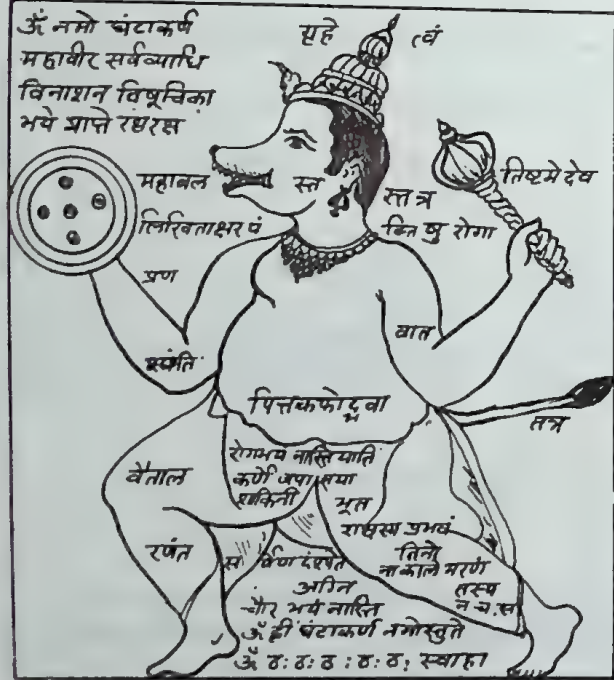 ॐ नमो घंटाकर्ण
महावीर सर्वव्याधि
विनाशन विषूचिका
भये प्राप्ते रक्षरक्ष
गृहे त्वं
महाबल स्त स्तत्र तिष्टमेदेव
लिखिताक्षर पं क्तिषु रोगा
प्रण
वात
श्यंति
पित्तकफोद्भवा
तत्र
रोगभयं नास्ति याति
वैताल कर्णे जपा क्षया
शाकिनी भूत
राक्षस्य प्रभवं
रणंत
तिनो
स र्पेण दंश्यते नाकाले मरणं
अग्नि तस्य
चौर भयं नास्ति न च.स
ॐ ह्रीं घंटाकर्ण नमोस्तुते
ॐ ठ: ठ: ठ: ठ: ठ: स्वाहा